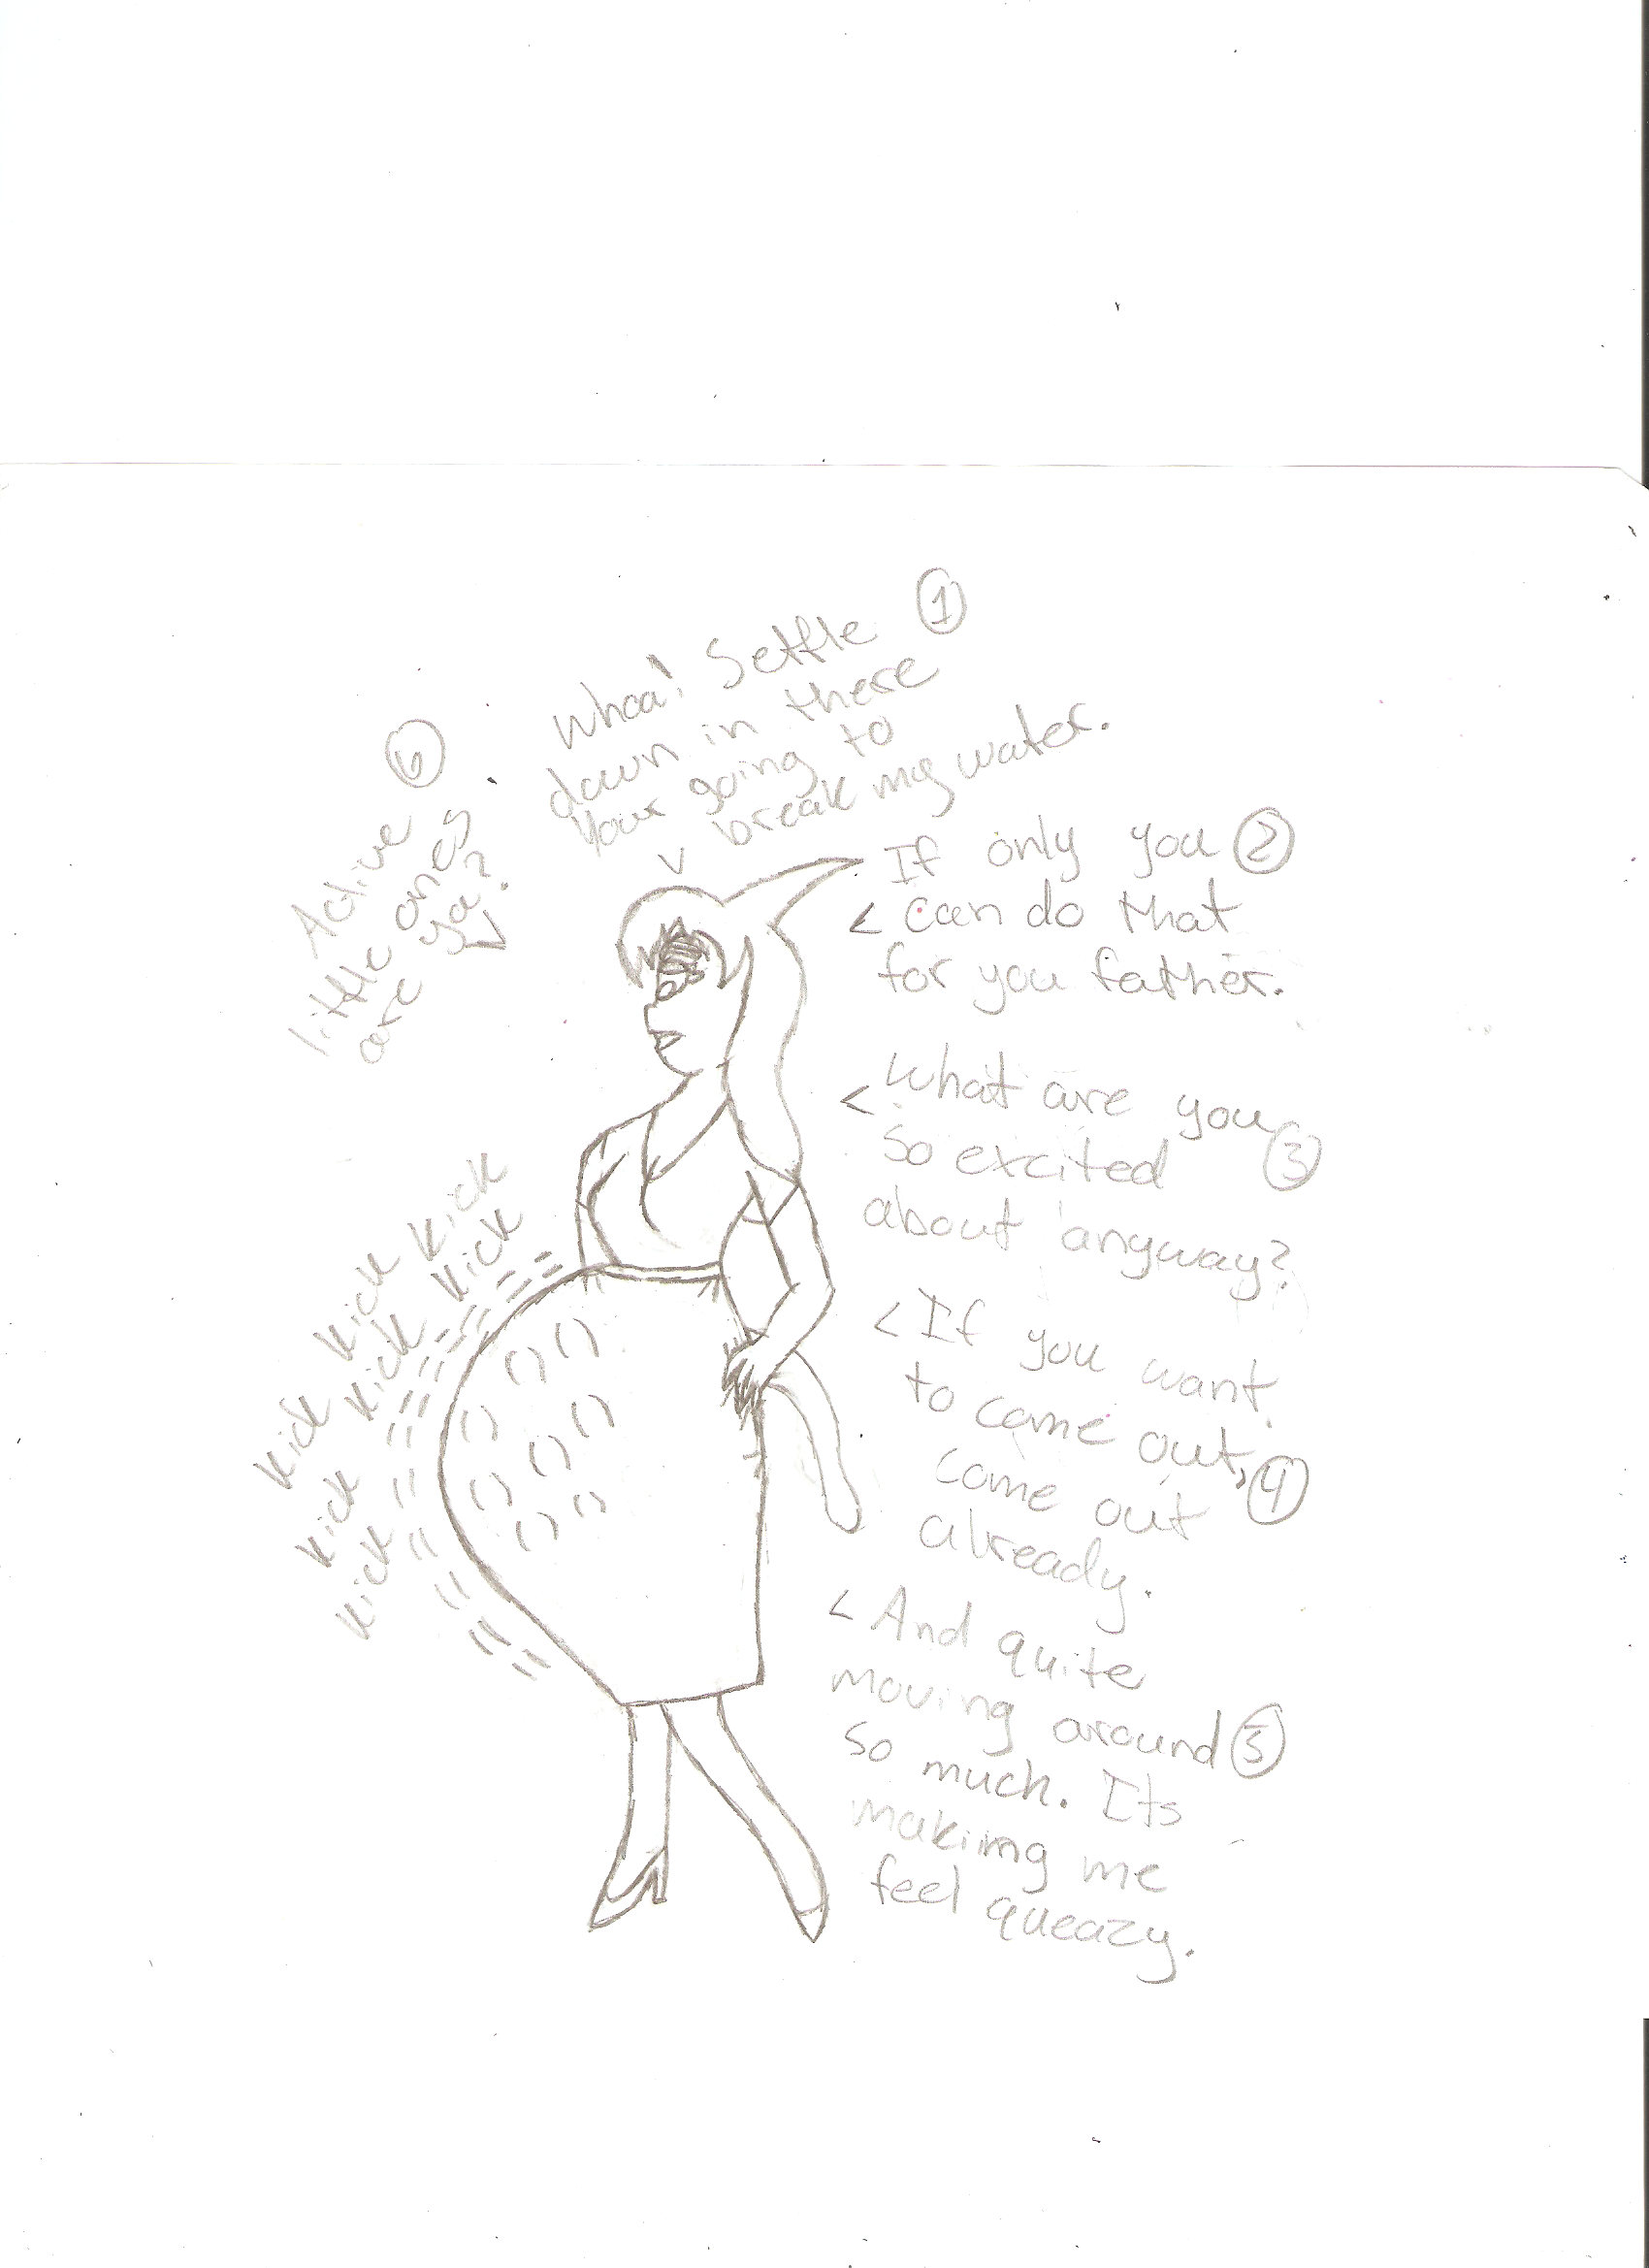 Whoa! Settle 1
down in there
your going to
break my water.
If only you 2
can do that
for you father.
What are you
so excited 3
about anyway?
If you want
to come out,
come out 4
already.
And quite
moving around 5
so much. Its
makiing me
feel queazy.
6
Active
little ones
are ya?
kick kick kick
kick kick kick
kick kick